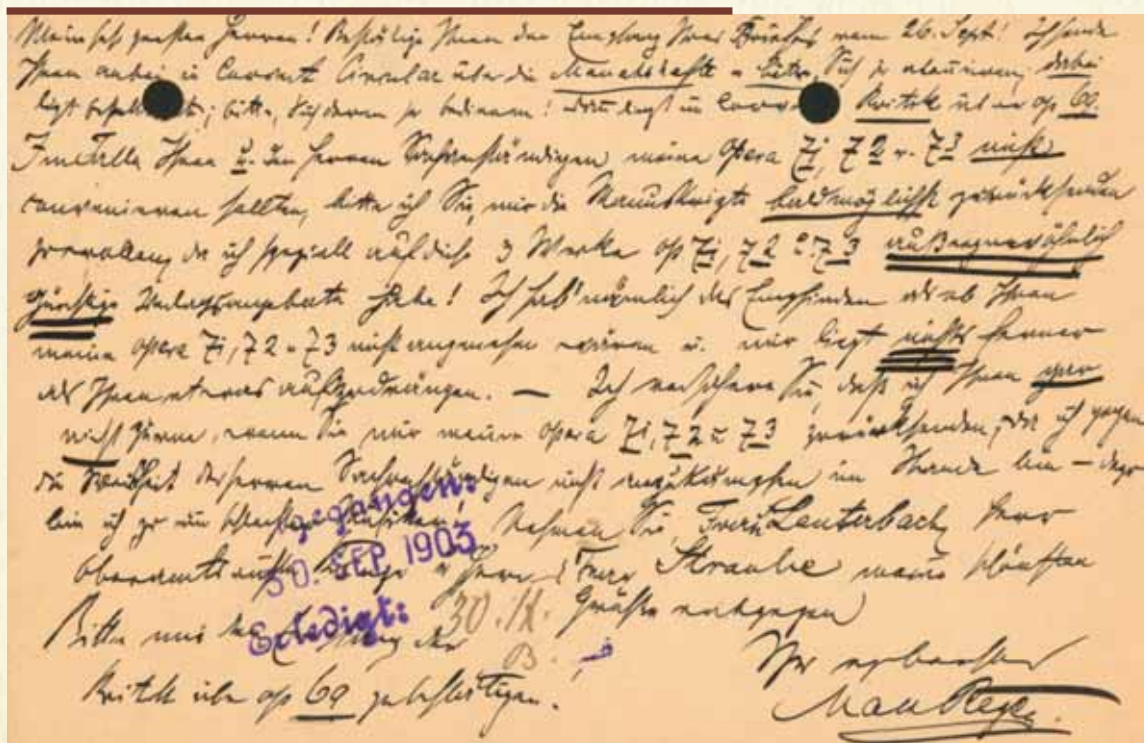 Mein sehr geehrter Herren! Bestätige Ihnen den Empfang Ihres Briefes vom 26. Sept! Ich sende
Ihnen anbei in Couvert Circular über die Monatshefte u. bitte, Sich zu abonniren; dabei
liegt; bitte, Sich deren zu bedienen! dann liegt im Kritik über op 60.
Im Falle Ihnen u. den Herren Sachverständigen meine Opera 71, 72 u. 73 nicht
convenieren sollten, bitte ich Sie, mir die Manuskripte baldmöglichst zurücksenden
zu wollen, da ich speziell auf diese 3 Werke op 71, 72 u. 73 außergewöhnlich
günstige Verlagsangebote habe! Ich hab' nämlich das Empfinden als ob Ihnen
meine Opera 71, 72 u 73 nicht angenehm wären u. mir liegt nichts ferner
als Ihnen etwas aufzudrängen. — Ich versichere Sie, daß ich Ihnen gar
nicht zürne, wenn Sie mir meine Opera 71, 72 u 73 zurücksenden, da ich gegen
die Weisheit der Herren Sachverständigen nicht anzukämpfen im Stande bin — dazu
bin ich zu ein schlechter Musiker! Nehmen Sie, Frau Lauterbach, Herr
gegangen:
30. SEP. 1903
u Herr u Frau Straube meine schönsten
Erledigt: 30. IX. Grüße entgegen
B.
Bitte mir den der
Kritik über op 60 zu bestätigen.
Ihr ergebenster
Max Reger.